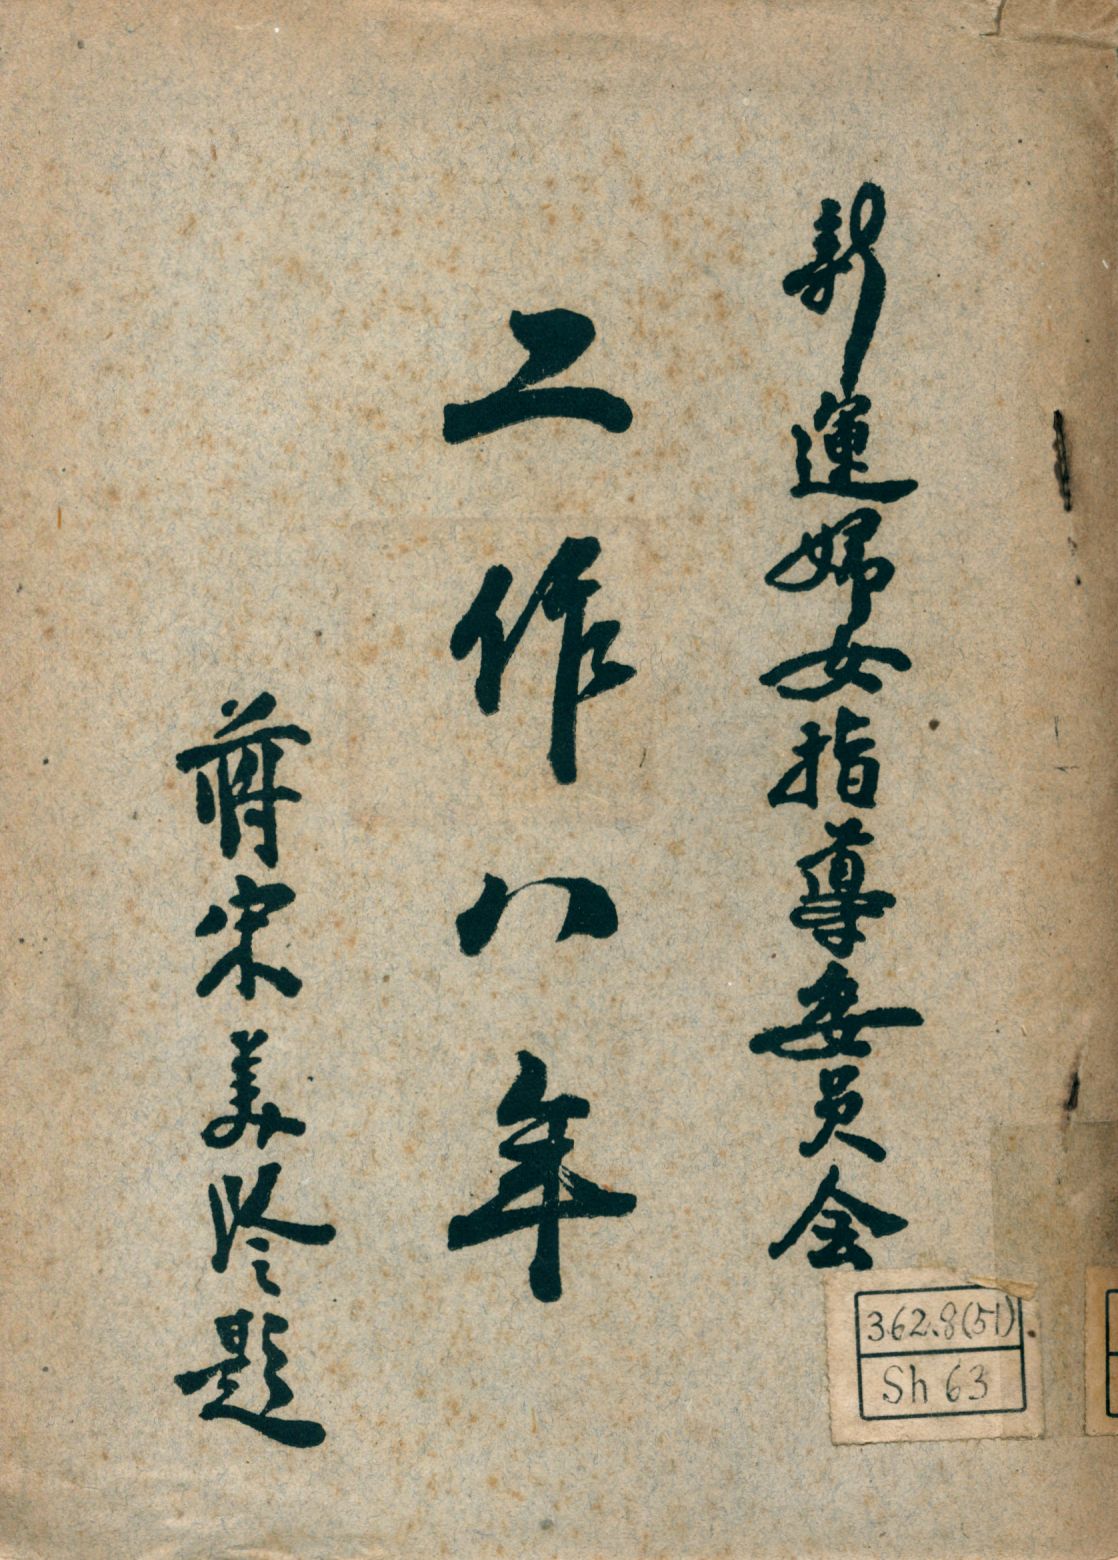 新運婦女指導委員会
工作八年
蔣宋美齡題
362.8(51)
Sh 63